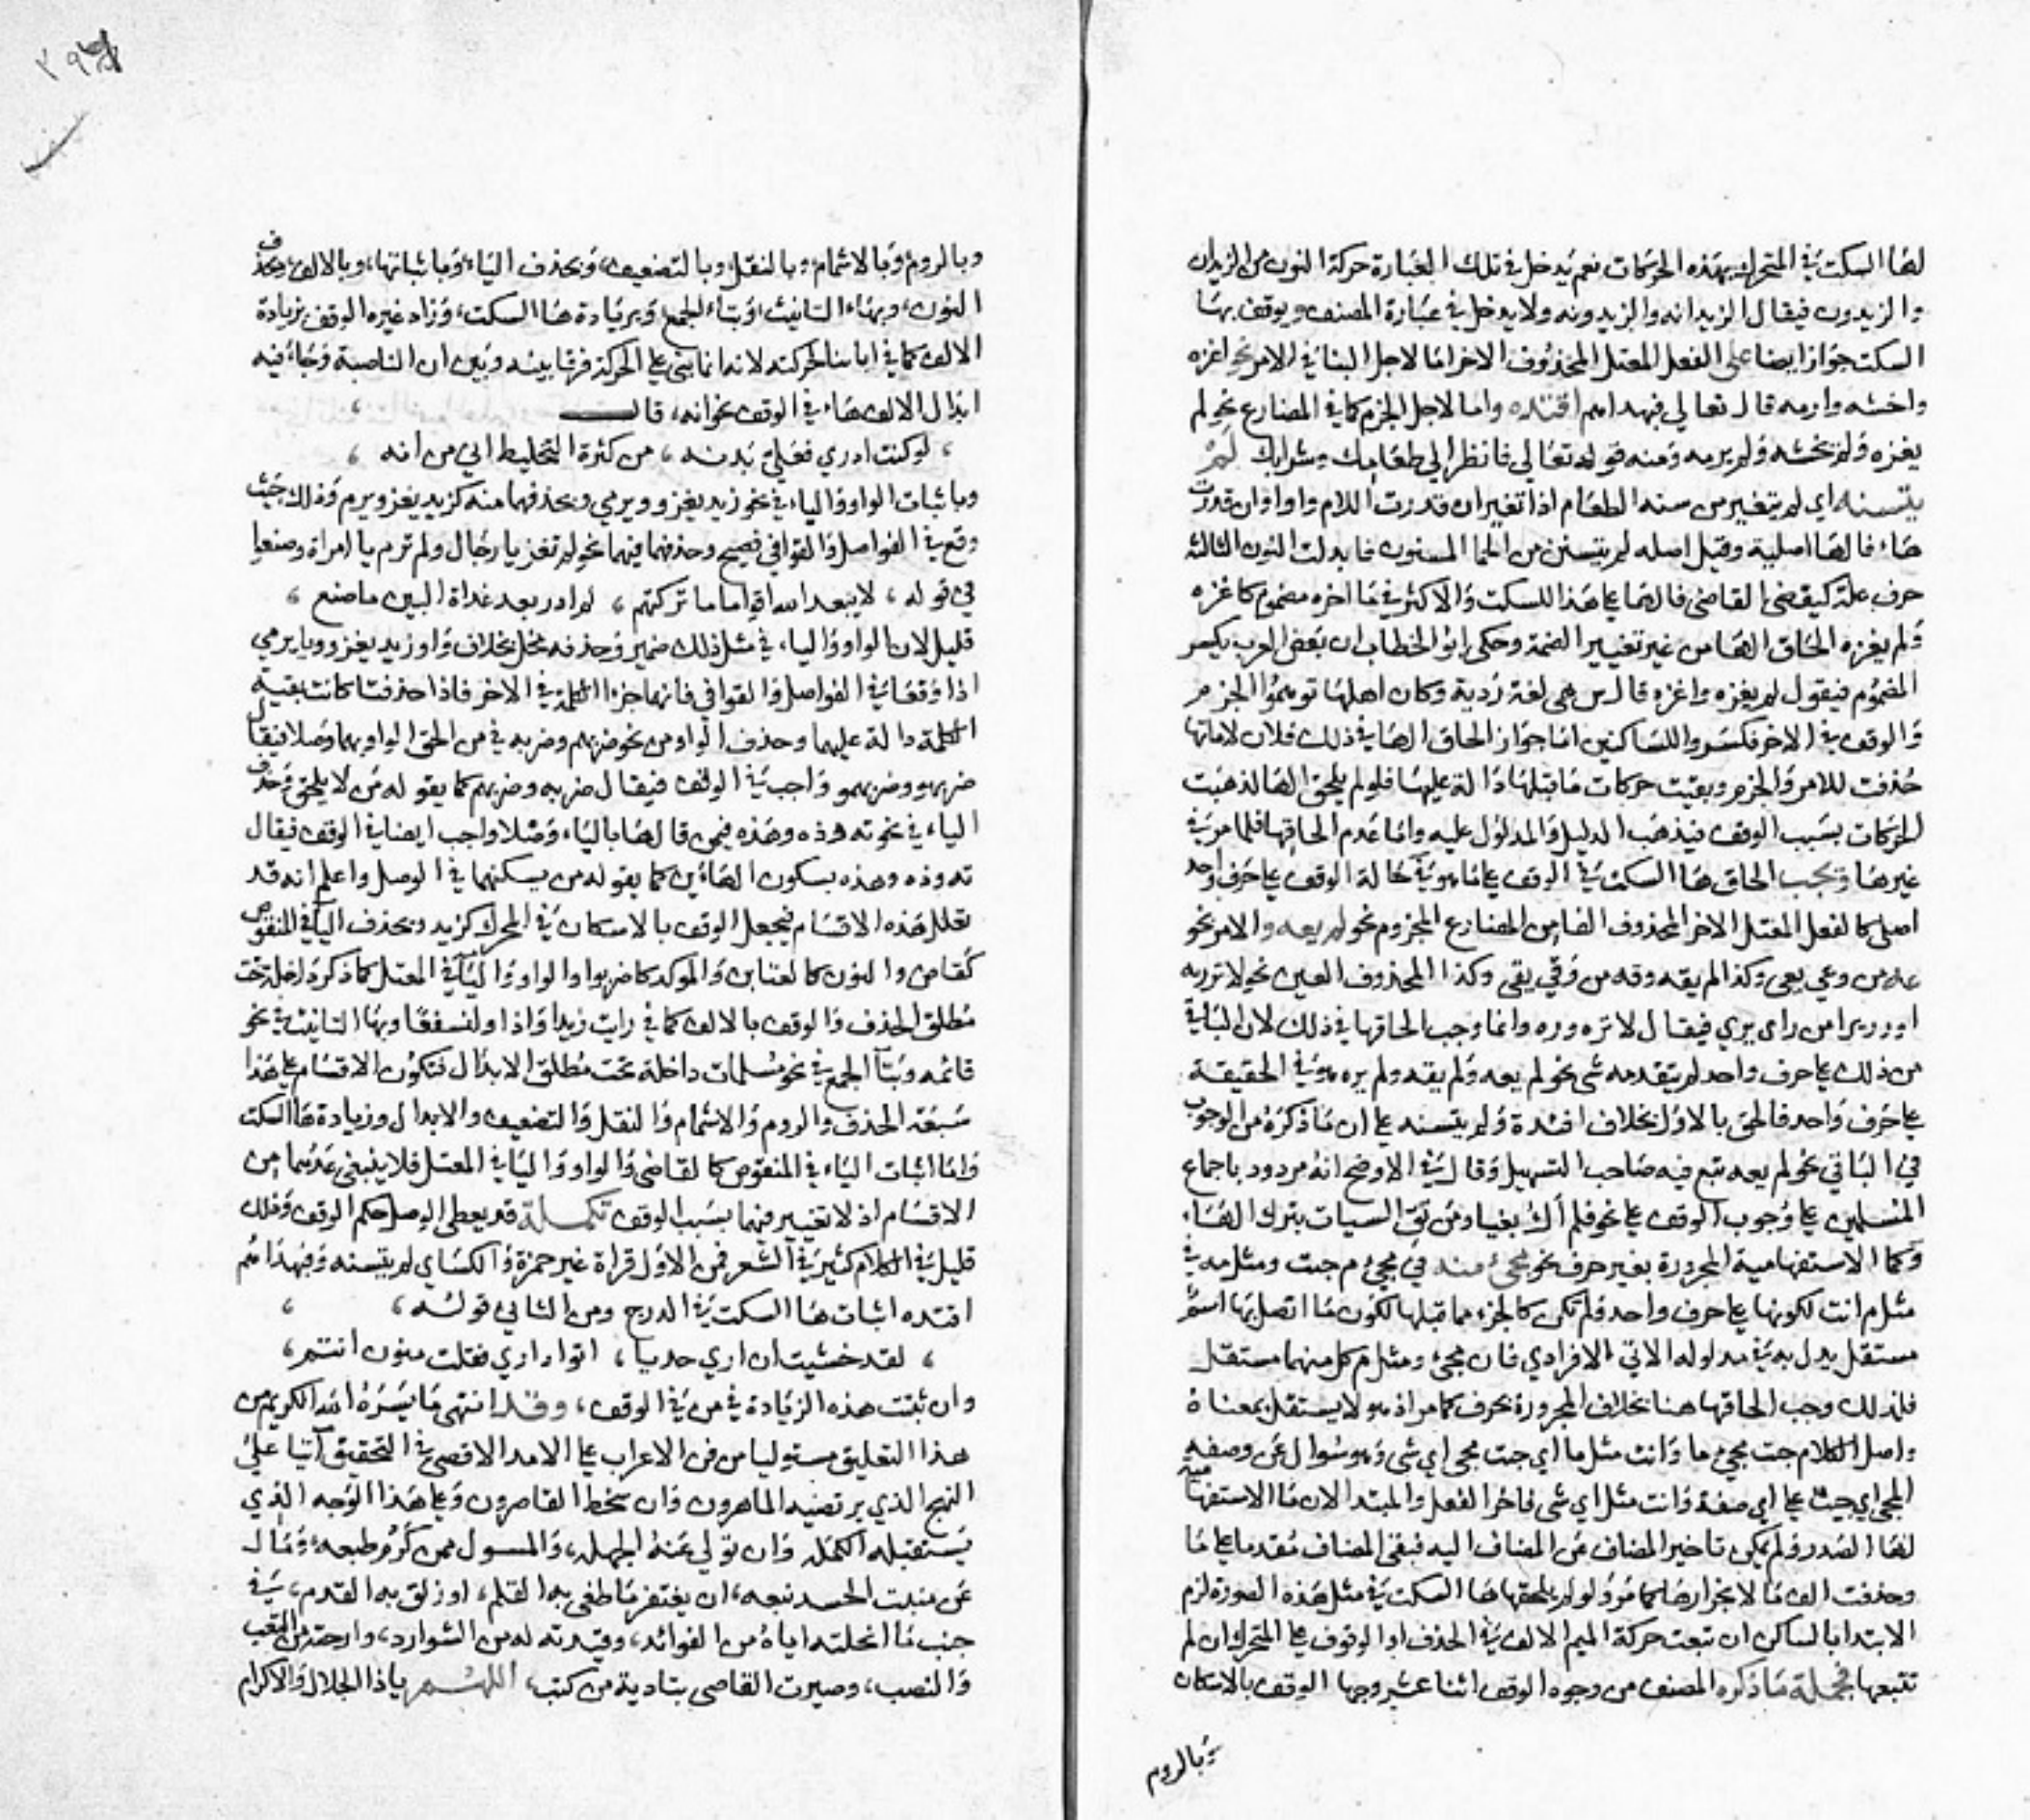 لها السكت في المتحرك بهذه الحركات نعم يدخل في تلك العبارة حركة النون من الزيدان
والزيدون فيقال الزيدانه والزيدونه ولا يدخل في عبارة المصنف ويوقف بها
السكت جوازا ايضا على الفعل المعتل المحذوف الاخر اما لاجل البنا في الامر نحو اغزه
واخشه وارمه قال تعالي فبهداهم اقتده واما لاجل الجزم كما في المضارع نحو لم
يغزه ولم يخشه ولم يرمه ومنه قوله تعالي فانظر الي طعامك وشرابك لم
يتسنه اي لم يتغير من سنه الطعام اذا تغير ان قدرت اللام واوا وان قدرت
هاء فالها اصلية وقيل اصله لم يتسنن من الحما المسنون فابدلت النون الثالثة
حرف علة كيقضي القاضي فالها علي هذا للسكت والاكثر في ما اخره مضموم كاغزه
ولم يغزه الحاق الها من غير تغيير الضمة وحكي ابو الخطاب ان بعض العرب يكسر
المضموم فيقول لم يغزه واغزه قال س هي لغة ردية وكان اهلها توهموا الجزم
والوقف في الاخر فكسروا للساكنين اما جواز الحاق الها في ذلك فلان لاماتها
حذفت للامر والجزم وبقيت حركات ما قبلها دالة عليها فلو لم يلحق الها لذهبت
الحركات بسبب الوقف فيذهب الدليل والمدلول عليه واما عدم الحاقها فلما مر في
غيرها ويجب الحاق ها السكت في الوقف علي ما هو في حالة الوقف علي حرف واحد
اصلي كالفعل المعتل الاخر المحذوف الفا من المضارع المجزوم نحو لم يعه والامر نحو
عه من وعي يعي وكذا لم يقه وقه من وقي يقي وكذا المحذوف العين نحو لا تر ره
او ور امرا من راي يري فيقال لا تره وره وانما وجب الحاقها في ذلك لان الباقي
من ذلك علي حرف واحد لم يتقدمه شي نحو لم يعه ولم يقه ولم يره هو في الحقيقة
علي حرف واحد فالحق بالاول بخلاف اقتده ولم يتسنه علي ان ما ذكره من الوجوب
في الباقي نحو لم يعه تبع فيه صاحب التسهيل وقال في الاوضح انه مردود باجماع
المسلمين علي وجوب الوقف علي نحو فلم أك بغيا ومن تق السيات بترك الهاء
وكما الاستفهامية المجرورة بغير حرف نحو مجيء مه في مجيء م جيت ومثل مه في
مثل م انت لكونها علي حرف واحد ولم تكن كالجزء مما قبلها لكون ما اتصل بها اسم
مستقل يدل به في مدلوله الاتي الافرادي فان مجيء ومثل م كل منهما مستقل
فلذلك وجب الحاقها هنا بخلاف المجرورة بحرف كما مر اذ هو لا يستقل بمعناه
واصل الكلام جيت مجيء ما وانت مثل ما اي جيت مجي اي شي وهو سؤال عن وصفه
المجي اي جيت علي اي صفة وانت مثل اي شي فاخر الفعل والمبتدا لان ما الاستفهامية
لها الصدر ولم يكن تاخير المضاف عن المضاف اليه فبقي المضاف مقدما علي ما
وحذفت الف ما لانجرارها كما مر ولو لم يلحقها ها السكت في مثل هذه الصورة لزم
الابتدا بالساكن ان تبعت حركة الميم الالف في الحذف او الوقوف علي المتحرك ان لم
تتبعها فجملة ما ذكره المصنف من وجوه الوقف اثنا عشر وجها الوقف بالاسكان
وبالروم
وبالروم وبالاشمام وبالنقل وبالتضعيف وبحذف الياء وباثباتها، وبالالف وبحذف
النون، وبهاء التانيث وبتاء الجمع وبزيادة ها السكت، وزاد غيره الوقف بزيادة
الالف كما في انا بنا لحركته لانه انما بني علي الحركة فرقا بينه وبين ان الناصبة وجاء فيه
ابدال الالف هاء في الوقف نحو انه، قال
، لو كنت ادري فعلي بدنه ، من كثرة التخليط اني من انه ،
وباثبات الواو والياء في نحو زيد يغزو ويرمي وبحذفهما منه كزيد يغز ويرم وذلك حيث
وقع في الفواصل والقوافي فصيح وحذفهما فيهما نحو لم تغز يا رجال ولم ترم يا امراة وصنعوا
في قوله ، لا يبعد الله اقواما ما تركتهم ، لم ادر بعد غداة البين ما صنع ،
قليل لان الواو والياء في مثل ذلك ضمير وحذفه مخل بخلاف واو زيد يغزو ويا يرمي
اذا وقعا في الفواصل والقوافي فانهما جزء الكلمة في الاخر فاذا حذفتا كانت بقية
الكلمة دالة عليهما وحذف الواو من نحو ضربهم وضربه في من الحق الواو بهما وصلا فيقال
ضربهو وضربهمو واجب في الوقف فيقال ضربه وضربهم كما يقوله من لا يلحق وحذف
الياء في نحو ته وذه وهذه فيمن قالها بالياء وصلا واجب ايضا في الوقف فيقال
ته وذه وهذه بسكون الهائين كما يقوله من يسكنهما في الوصل واعلم انه قد
تقلل هذه الاقسام فيجعل الوقف بالاسكان في المحرك كزيد وبحذف اليا في المنقوص
كقاض والنون كالعتابن والموكد كاضربوا والواو واليا في المعتل كما ذكر داخلة تحت
مطلق الحذف والوقف بالالف كما في رايت زيدا واذا ولنسفعا وبها التانيث في نحو
قائمه وبتا الجمع في نحو مسلمات داخلة تحت مطلق الابدال فتكون الاقسام علي هذا
سبعة الحذف والروم والاشمام والنقل والتضعيف والابدال وزيادة ها السكت
واما اثبات الياء في المنقوص كالقاضي والواو واليا في المعتل فلا ينبغي عدهما من
الاقسام اذ لا تغيير فيهما بسبب الوقف تكملة قد يعطي الوصل حكم الوقف وذلك
قليل في الكلام كثير في الشعر فمن الاول قراة غير حمزة والكسائي لم يتسنه وفبهداهم
اقتده اثبات ها السكت في الدرج ومن الثاني قوله ،
، لقد خشيت ان اري جدبا ، اتوا ناري فقلت منون انتم ،
وان ثبتت هذه الزيادة في من في الوقف، وقد انتهي ما يسره الله الكريم من
هذا التعليق مستوليا من فن الاعراب علي الامد الاقصي في التحقيق آتيا علي
النهج الذي يرتضيه الماهرون وان سخط القاصرون وعلي هذا الوجه الذي
يستقبله الكملة وان تولي عنه الجهلة، والمسول ممن كرم طبعه، ومال
عن منبت الحسد نبعه، ان يغتفر ما طغي به القلم، او زلق به القدم، في
جنب ما انحلته اياه من الفوائد، وقيدته له من الشوارد، وارحته من التعب
والنصب، وصيرت القاصي بتادية من كتب، اللهم ياذا الجلال والاكرام